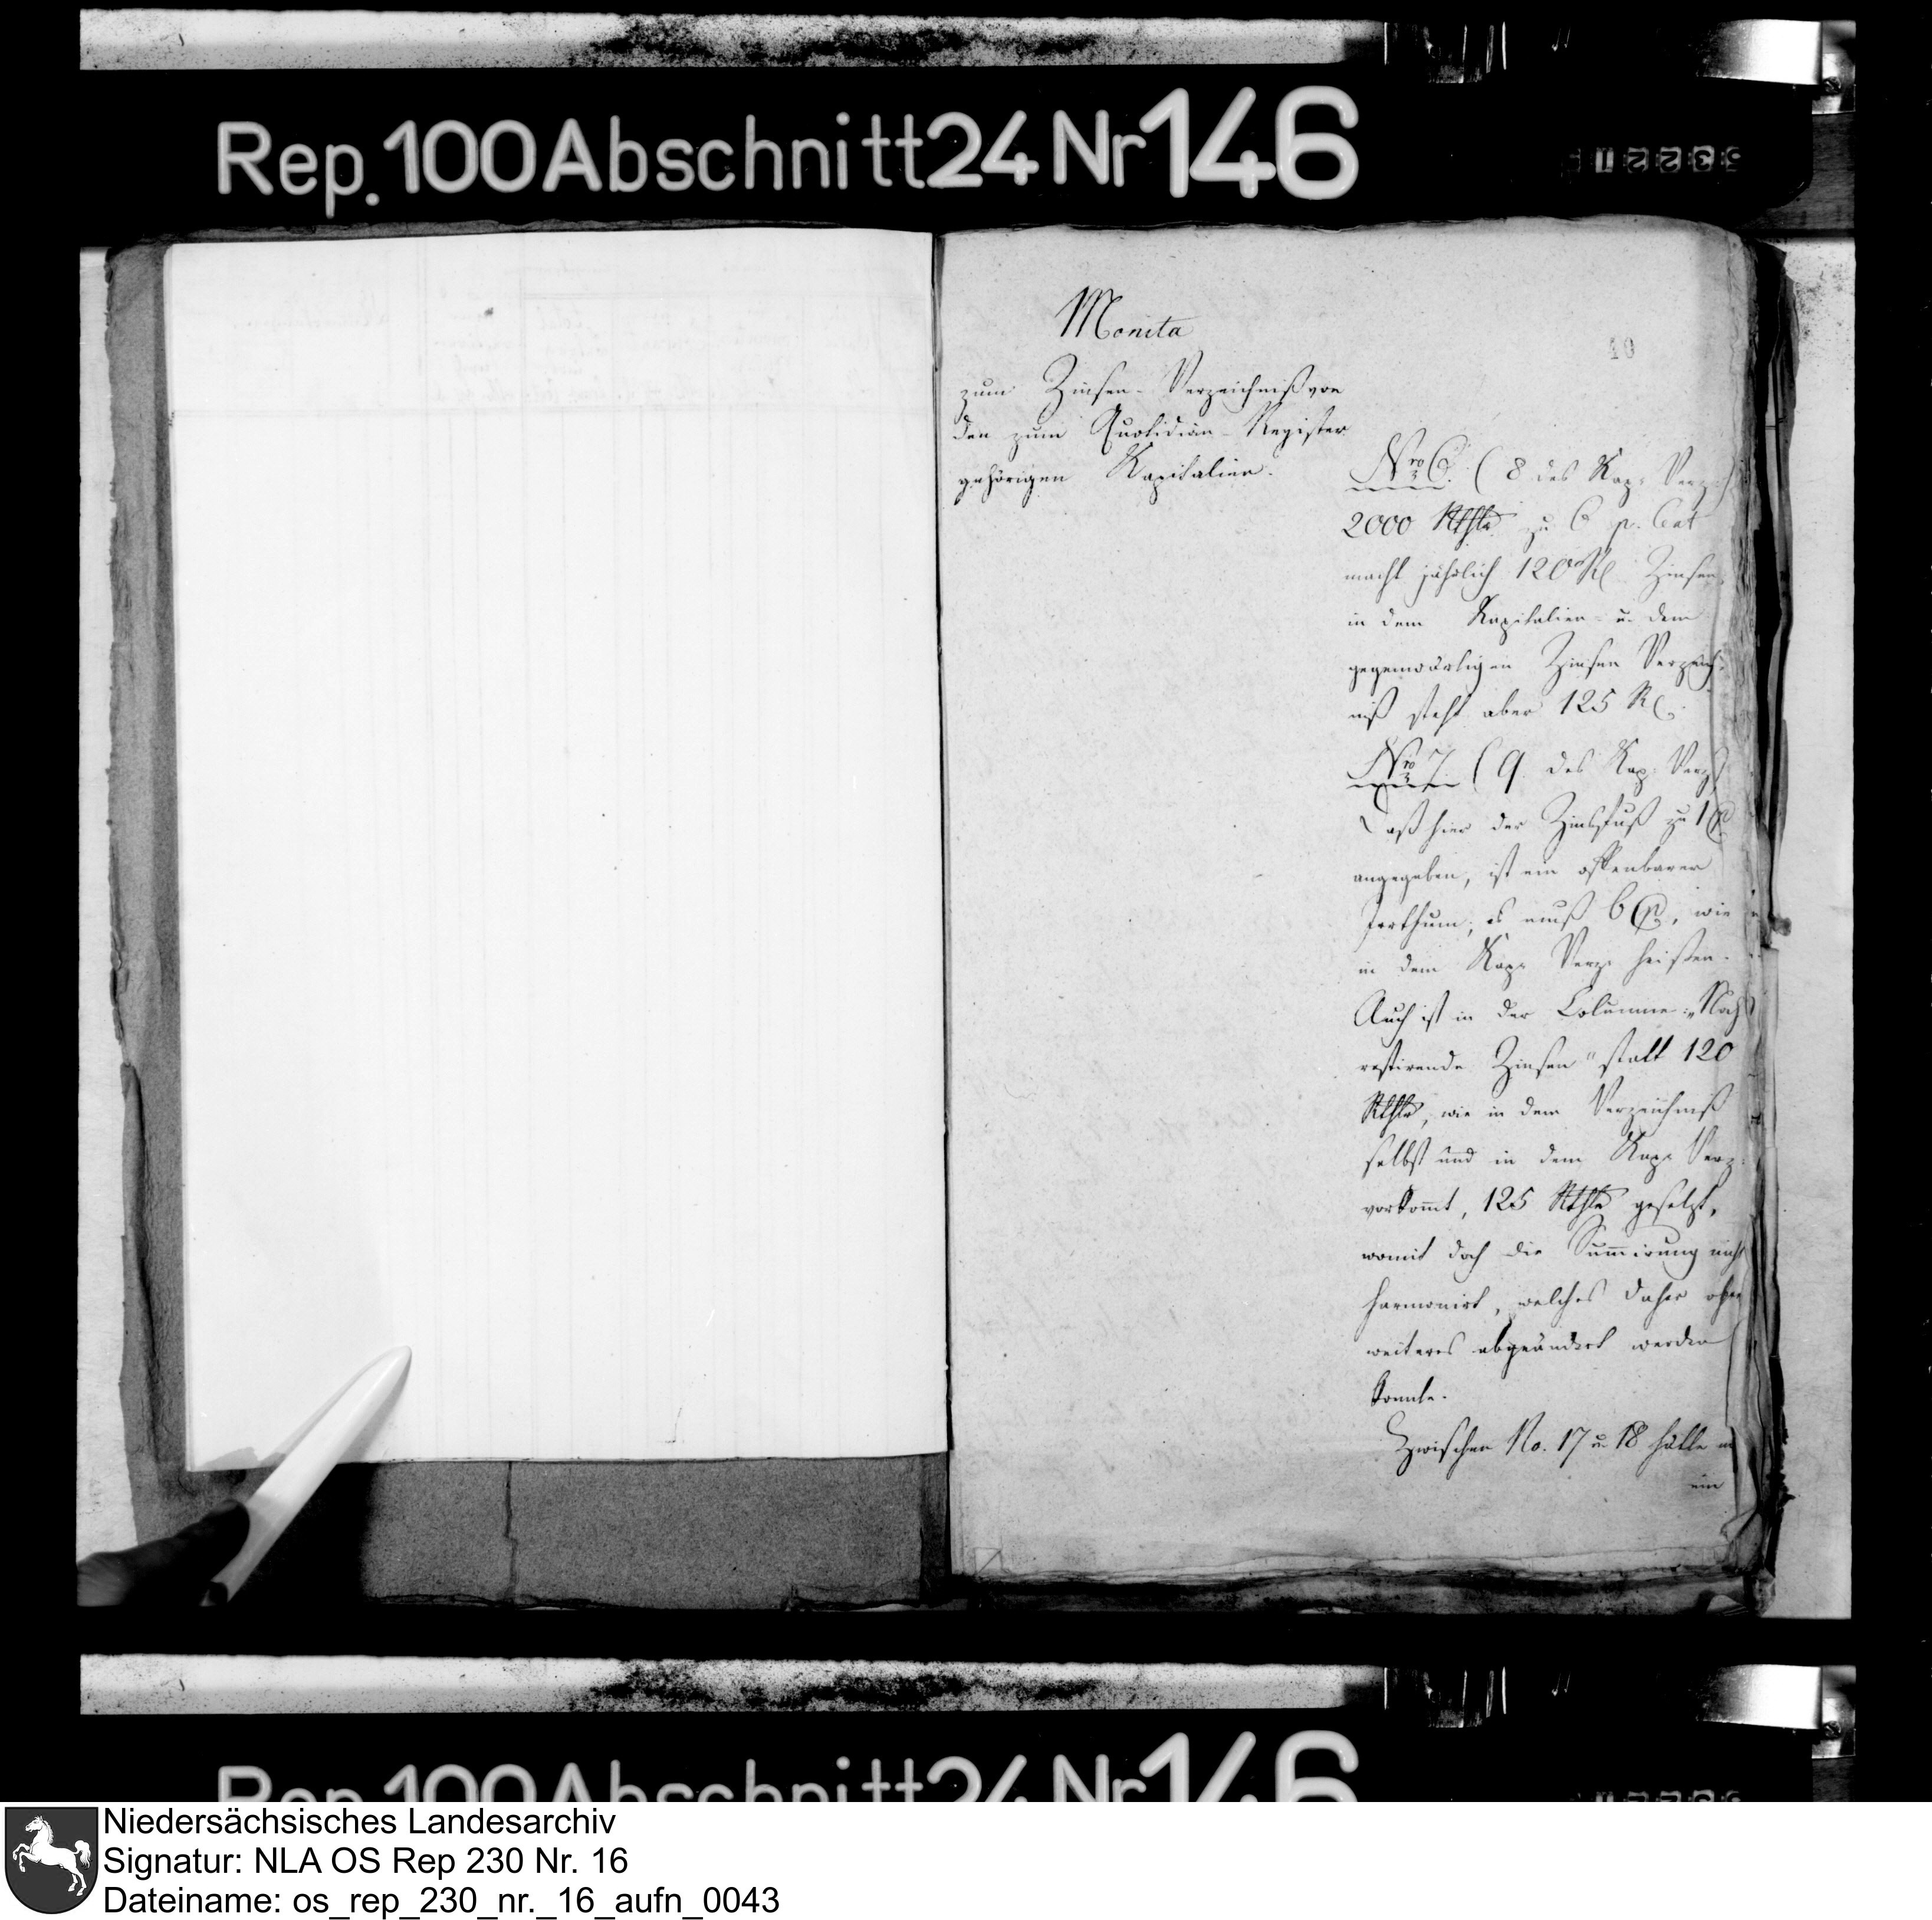 Rep. 100 Abschnitt 24 Nr 146
40
Monita
zum Zinsen-Verzeichniß von
den zum Quotidian-Register
gehörigen Kapitalien.
Nro 6. (8 des Kap: Verz:)
2000 Rthlr zu 6 p. Cent
macht jährlich 120 Rl. Zinsen,
in dem Kapitalien- u. dem
gegenwärtigen Zinsen Verzeich-
niß steht aber 125 Rl.
Nro 7. (9. des Kap: Verz)
Daß hier der Zinsfuß zu 1
angegeben, ist ein offenbarer
Irrthum; es muß 6 , wie
in dem Kap: Verz: heißen.
Auch ist in der Columne: „Noch
restirende Zinsen" statt 120
Rthlr, wie in dem Verzeichniß
selbst und in dem Kap: Verz:
vorkom̄t, 125 Rthlr gesetzt,
womit doch die Sum̄irung nicht
harmonirt, welches daher ohne
weiteres abgeändert werden
konnte.
Zwischen No. 17 u. 18 hätte
ein
Rep. 100 Abschnitt 24 Nr 146
Niedersächsisches Landesarchiv
Signatur: NLA OS Rep 230 Nr. 16
Dateiname: os_rep_230_nr._16_aufn_0043